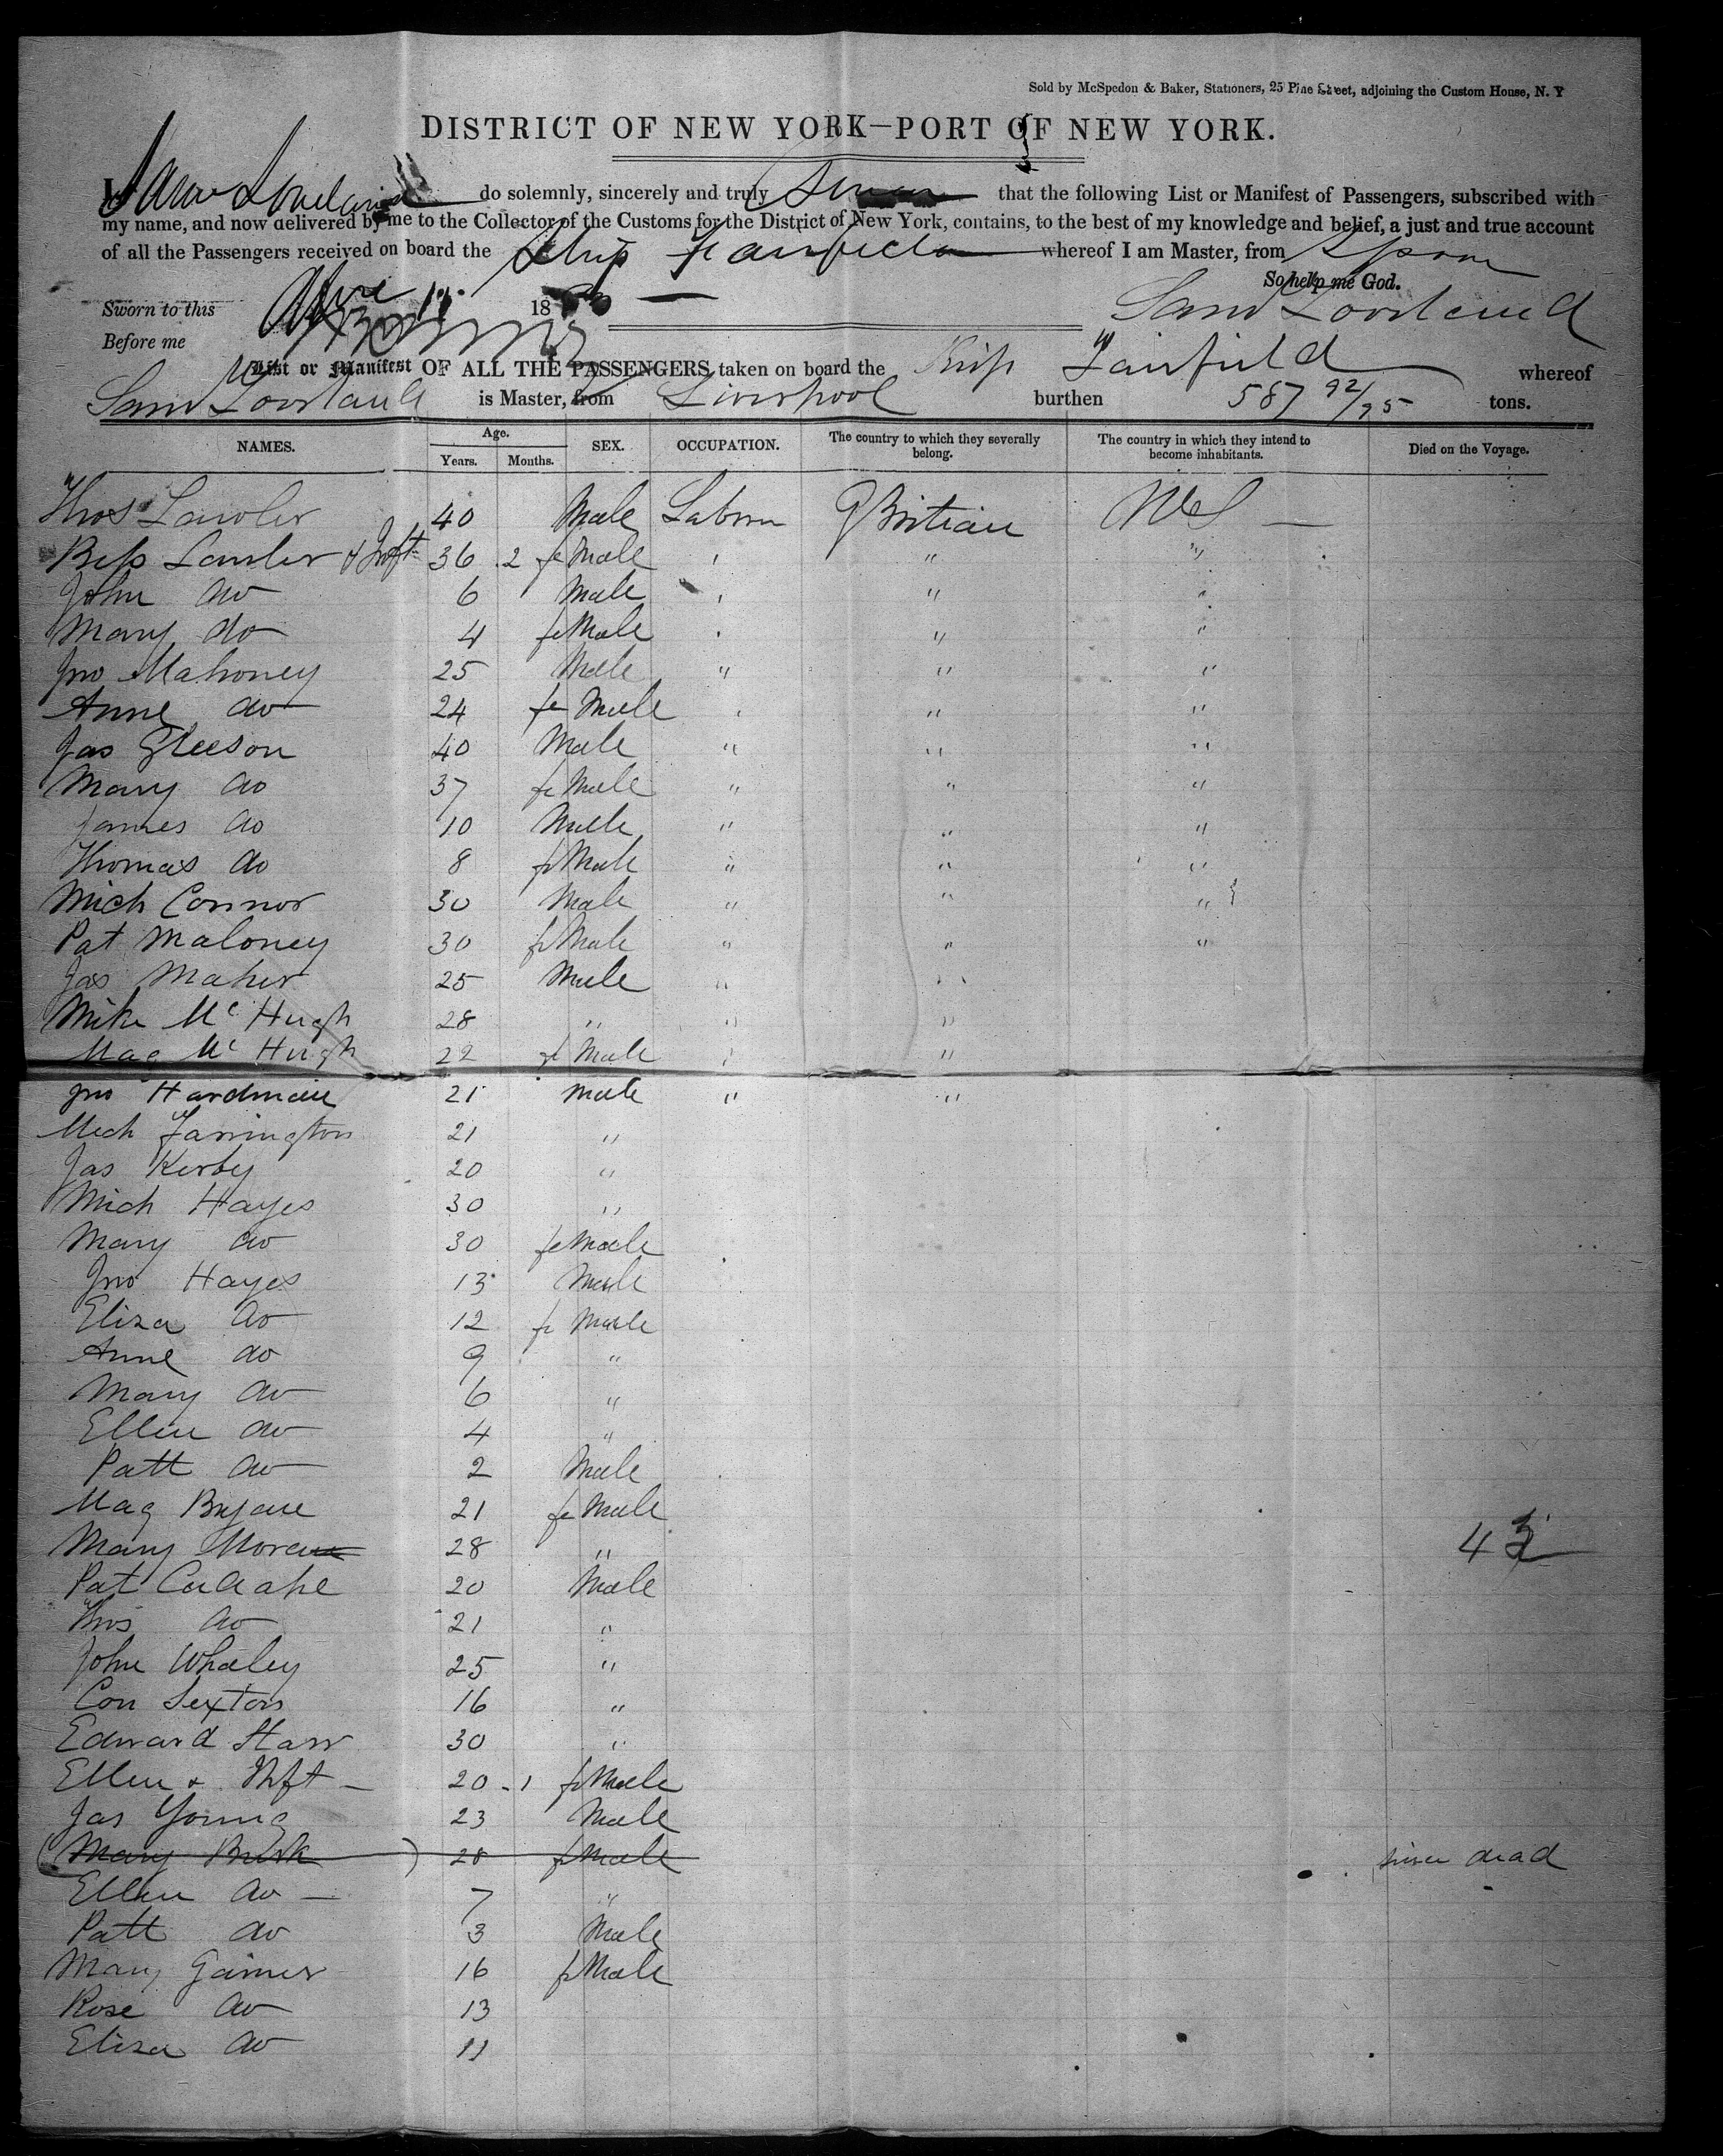 Sold by McSpedon & Baker, Stationers, 25 Pine Street, adjoining the Custom House, N. Y
DISTRICT OF NEW YORK—PORT OF NEW YORK.
I, do solemnly, sincerely and truly that the following List or Manifest of Passengers, subscribed with
my name, and now delivered by me to the Collector of the Customs for the District of New York, contains, to the best of my knowledge and belief, a just and true account
of all the Passengers received on board the Ship Fairfield whereof I am Master, from Lpool
So help me God.
Sworn to this 18 Saml Loveland
Before me
List or Manifest OF ALL THE PASSENGERS taken on board the Ship Fairfield whereof
Saml Loveland is Master, from Liverpool burthen 587 92/95 tons.
NAMES. Age. Years. Months. SEX. OCCUPATION. The country to which they severally belong. The country in which they intend to become inhabitants. Died on the Voyage.
Thos Lawler 40 Male Labour G Britian
Bess Lawler & Inft 36 2 fe Male " " "
John do 6 Male " " "
Mary do 4 fe Male " " "
Jno Mahoney 25 Male " " "
Anne do 24 fe Male " " "
Jas Gleeson 40 Male " " "
Mary do 37 fe Male " " "
James do 10 Male " " "
Thomas do 8 fe Male " " "
Mich Connor 30 Male " " "
Pat Maloney 30 fe Male " " "
Jas Maher 25 Male " "
Mike Mc Hugh 28 " " "
Mag Mc Hugh 22 fe Male " "
Jno Hardman 21 Male " "
Mich Farrington 21 "
Jas Kerby 20 "
Mich Hayes 30 "
Mary do 30 fe Male
Jno Hayes 13 Male
Eliza do 12 fe Male
Anne do 9 "
Mary do 6 "
Ellen do 4 "
Patt do 2 Male
Mag 21 fe Male
Mary Moran 28 "
Pat 20 Male
Thos do 21 "
John Whaley 25 "
Con Sexton 16 "
Edward Starr 30 "
Ellen & Inft 20 1 fe Male
Jas Young 23 Male
(Mary) 28 fe Male since dead
Ellen do 7 "
Patt do 3 Male
Mary Gainer 16 fe Male
Rose do 13
Eliza do 11